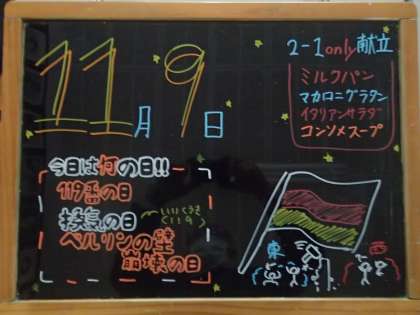 11月9日
2-1 only 献立
ミルクパン
マカロニグラタン
イタリアンサラダ
コンソメスープ
今日は何の日!!
119番の日
換気の日
いい くうき
ベルリンの壁
崩壊の日
東
西